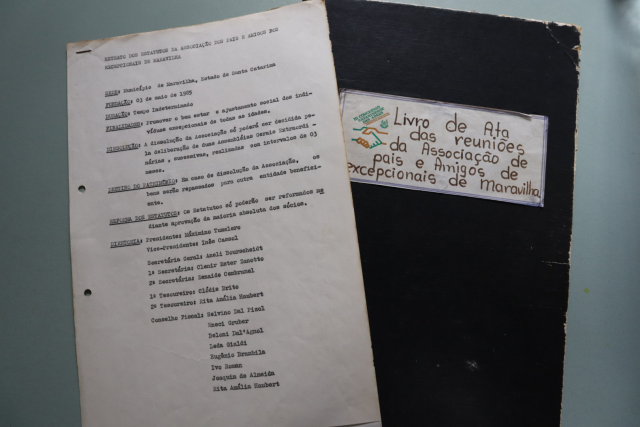 EXTRATO DOS ESTATUTOS DA ASSOCIAÇÃO DOS PAIS E AMIGOS DOS
EXCEPCIONAIS DE MARAVILHA
SEDE: Município de Maravilha, Estado de Santa Catarina
FUNDAÇÃO: 03 de maio de 1985
DURAÇÃO: Tempo Indeterminado
FINALIDADES: Promover o bem estar e ajustamento social dos indi-
víduos excepcionais de todas as idades.
DISSOLUÇÃO: A dissolução da Associação só poderá ser decidida pe-
la deliberação de duas Assembléias Gerais Extraordi -
nárias , sucessivas, realizadas com intervalos de 03
meses.
DESTINO DO PATRIMÔNIO: Em caso de dissolução da Associação, os
bens serão repassados para outra entidade benefici-
ente.
REFORMA DOS ESTATUTOS: Os Estatutos só poderão ser reformados me
diante aprovação da maioria absoluta dos sócios.
DIRETORIA: Presidente: Máximino Tumelero
Vice-Presidente: Inês Casuol
Secretária Geral: Aneli Bourscheidt
1ª Secretária: Clenir Ester Zanotto
2ª Secretária: Zenaide Cembranel
1º Tesoureiro: Clódis Brito
2º Tesoureiro: Rita Amália Humbert
Conselho Fiscal: Selvino Dal Pizol
Gruber
Deloni Dal'Agnol
Leda Sisldi
Eugênio
Ivo Roman
Joaquim de Almeida
Rita Amália Humbert
Livro de Ata
das reuniões
da Associação de
pais e Amigos de
excepcionais de maravilha.